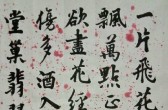 一片飛花
飄萬點正
欲盡花經
傷多酒入
堂巢翡翠